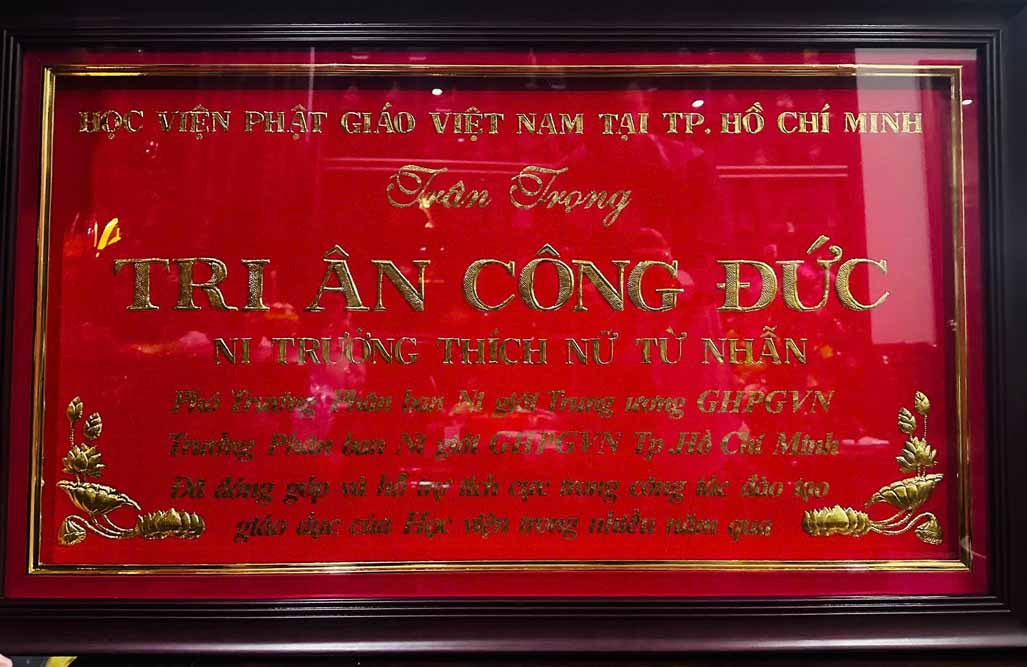 HỌC VIỆN PHẬT GIÁO VIỆT NAM TẠI TP. HỒ CHÍ MINH
Trân Trọng
TRI ÂN CÔNG ĐỨC
NI TRƯỞNG THÍCH NỮ TỪ NHẪN
Phó Trưởng Phân ban Ni giới Trung ương GHPGVN
Trưởng Phân ban Ni giới GHPGVN Tp.Hồ Chí Minh
Đã đóng góp và hỗ trợ tích cực trong công tác đào tạo
giáo dục của Học viện trong nhiều năm qua